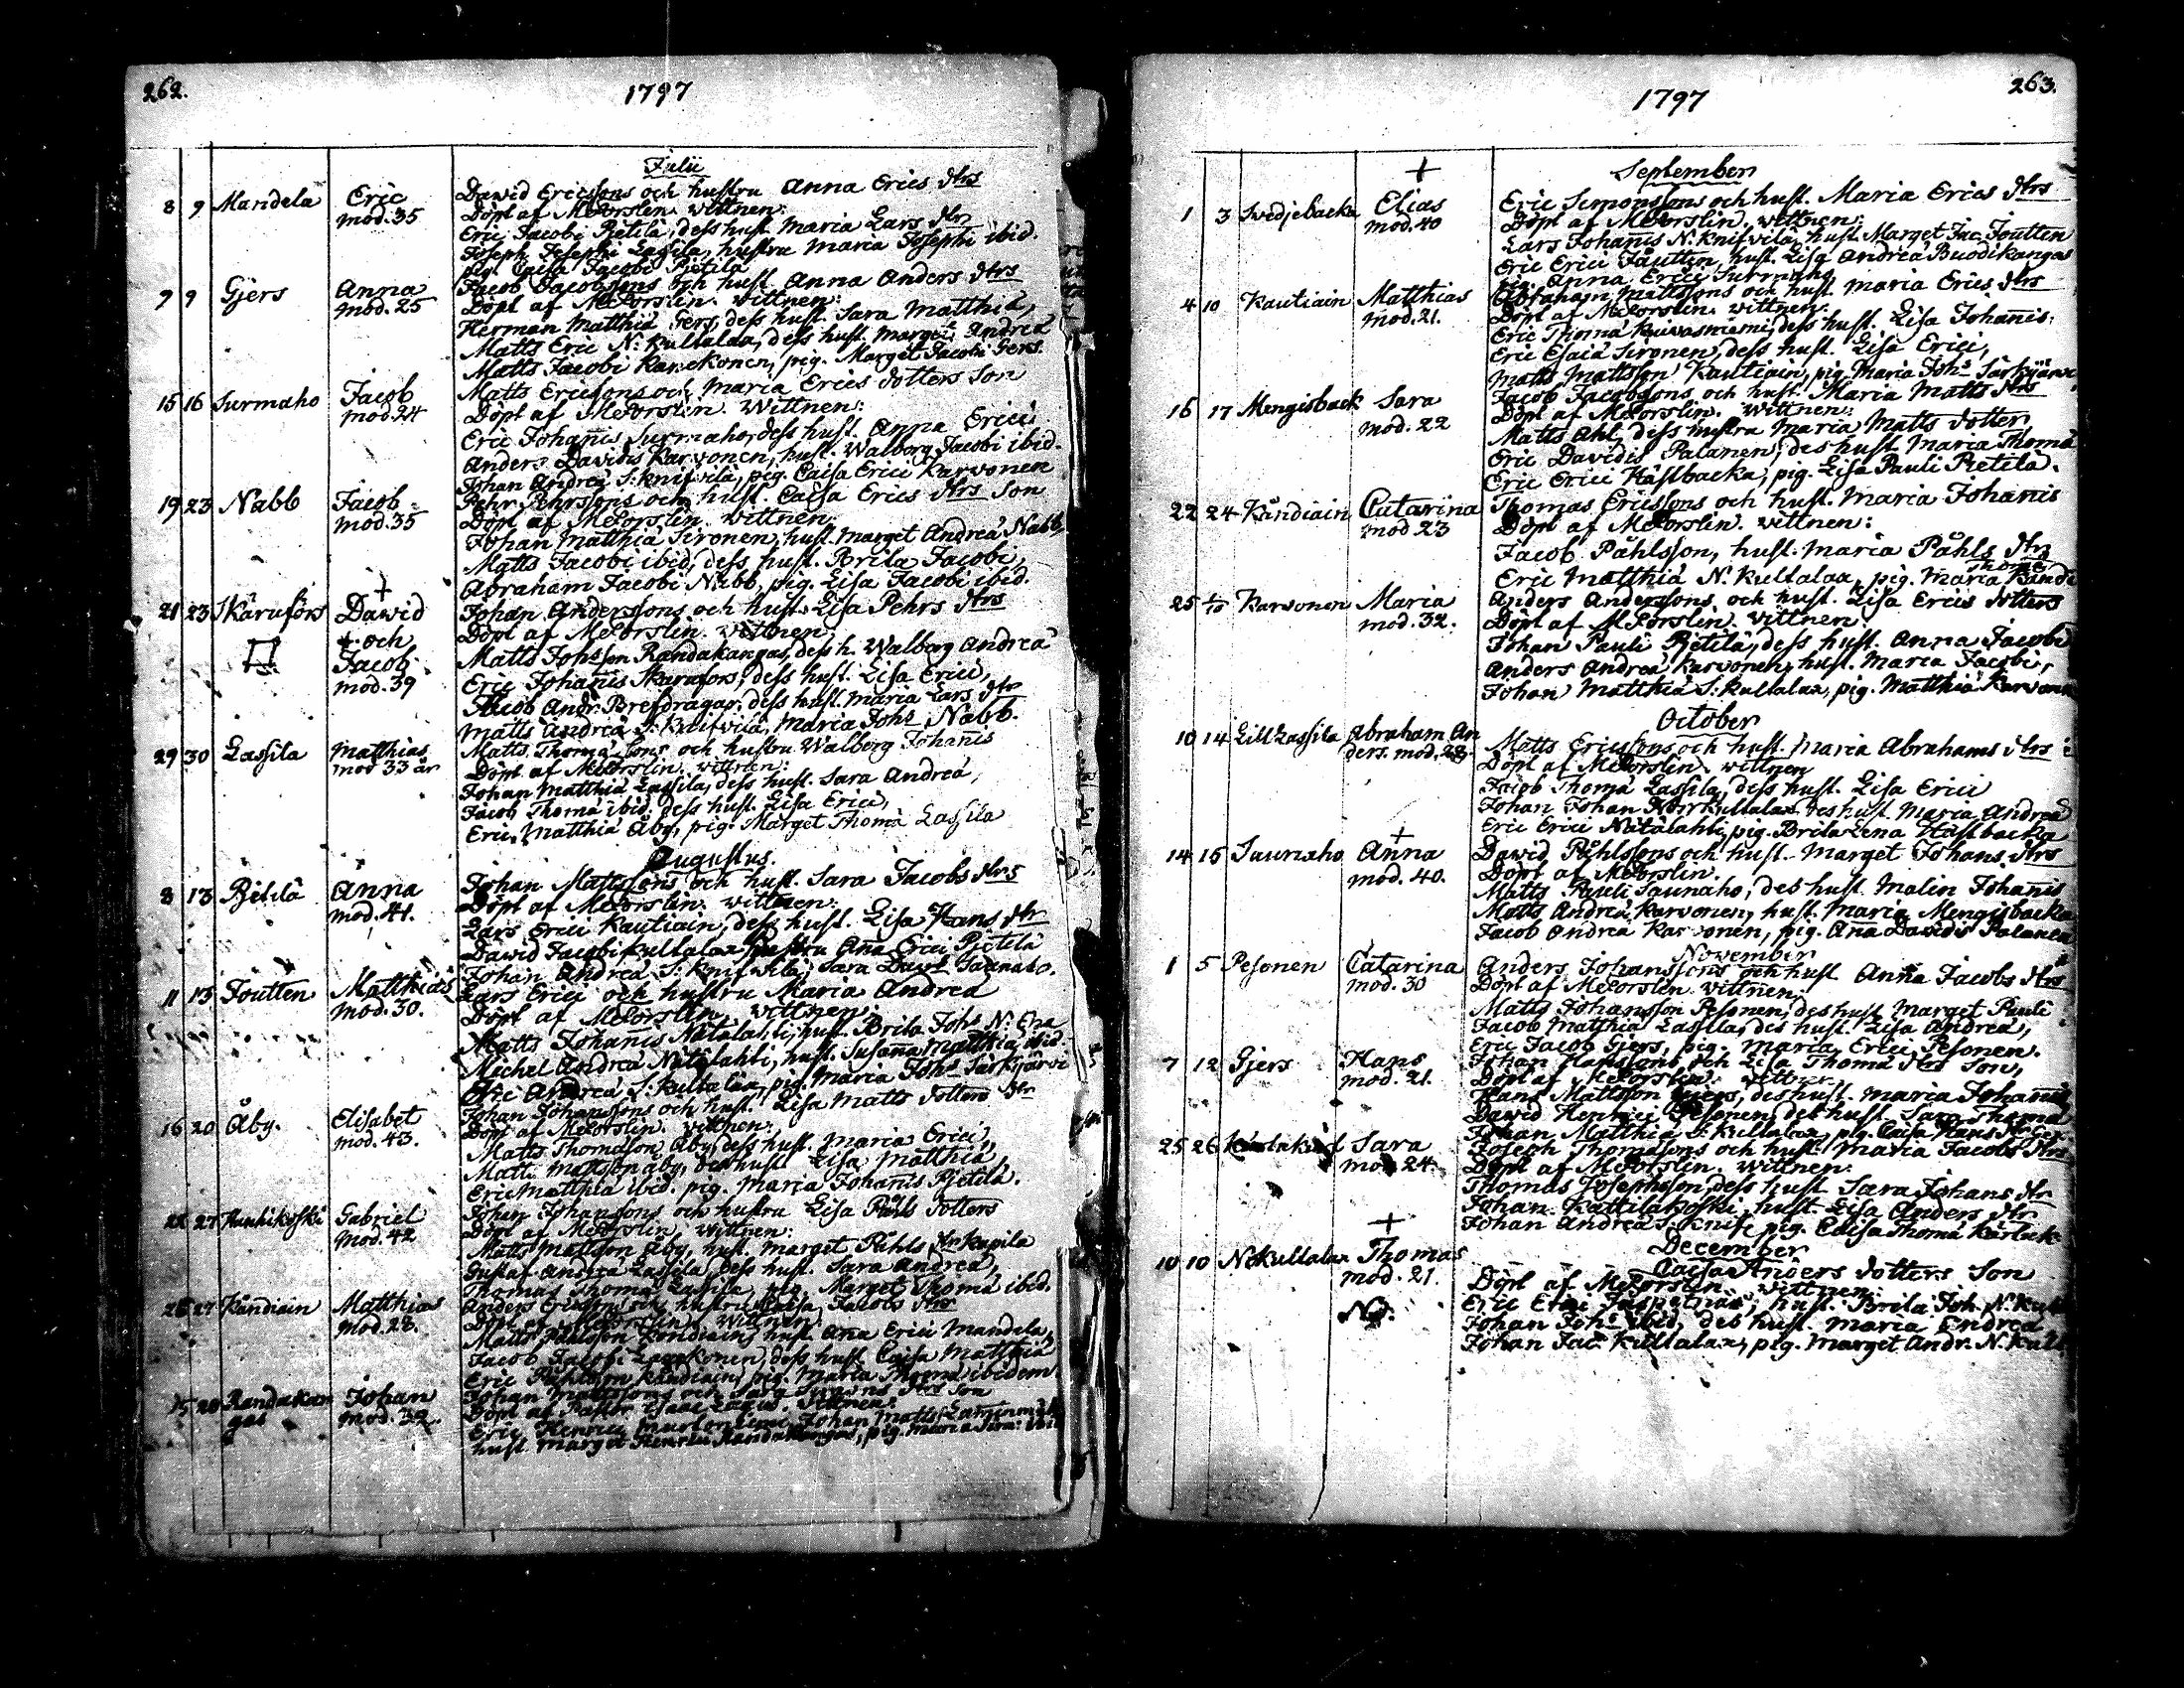 262.
1797
Julii
8 9 Mandela Eric mod. 35
David Ericssons och hustru Anna Erics dtrs
Döpt af M. Forslin. wittnen:
Eric Jacobi Pietilä, dess hust Maria Lars dtr
Joseph Josephi Lassila, hustru Maria Josephi ibid.
pig. Caisa Jacobi Pjetilä
7 9 Gjers Anna mod. 25
Jacob Jacobssons och hust. Anna Anders dtrs
Döpt af M. Forslin. wittnen:
Herman Matthiä Gers, dess hust. Sara Matthiä,
Matts Eric N: Kullalaa, dess hust. Marget Andreä
Matts Jacobi Karfvonen, pig. Marget Jacobi Gers.
15 16 Surmaho Jacob mod. 24
Matts Ericssons och Maria Erics dotters Son
Döpt af M. Forslin. Wittnen:
Eric Johannis Surmaho, dess hust. Anna Erici
Anders Davidis Karvonen, hust. Walborg Jacobi ibid.
Johan Andreä S: knifvilä, pig. Caisa Erici Karvonen
19 23 Nabb Jacob mod. 35
Pehr Pehrssons och hust. Caisa Erics dtrs Son
Döpt af M. Forslin. Wittnen:
Johan Matthiä Sironen, hust. Marget Andreä Nabb,
Matts Jacobi ibid, dess hust. Brita Jacobi,
Abraham Jacobi Nabb, pig. Lisa Jacobi ibid.
21 23 Skärufors + Dawid + och Jacob mod. 39
Johan Anderssons och hust. Lisa Pehrs dtrs
Döpt af M. Forslin. Wittnen:
Matts Johsson Randakangas, dess h. Walborg Andreä
Eric Johannis Skärufors, dess hust. Lisa Erici,
Jacob Andr. Brefdragar, dess hust. Maria Lars dtr
Matts Andreä S: Knifvilä, Maria Johs Nabb.
29 30 Lassila Matthias mod 33 år
Matts Thomä sons och hustru Walborg Johannis
Döpt af M. Forslin. wittnen:
Johan Matthiä Lassila, dess hust. Sara Andreä,
Jacob Thomä ibid. dess hust. Lisa Erici,
Eric Matthiä Åby, pig. Marget Thomä Lassila
Augustus.
8 13 Pjetilä Anna mod. 41.
Johan Mattssons och hust. Sara Jacobs dtrs
Döpt af M. Forslin. wittnen:
Lars Erici Kautiain, dess hust. Lisa Hans dtr
David Jacobi Kullalaa, hustru Ana Erici Pjetilä
Johan Andreä S: Knifvilä, Sara David Saunaho.
11 13 Joutten Matthias mod. 30.
Lars Erici och hustru Maria Andreä
Döpt af M. Forslin. Wittnen:
Matts Johanis Natälahti, hust. Brita Johs N:
Michel Andreä Natälahti, hust. Susanna Matthiä ibid.
Eric Andreä S: Kullalaa, pig. Maria Johs Särkijärvi
16 20 Åby. Elisabet mod. 43.
Johan Johanssons och hust. Lisa Matts dotters dtr
Döpt af M. Forslin. wittnen:
Matts Thomasson Åby, dess hust. Maria Erici,
Matts Mattsson åby, des hust Lisa Matthiä,
Eric Matthiä ibid. pig. Maria Johanis Pjetilä.
27 Hauhikoski Gabriel Mod. 42
Johan Johanssons och hustru Lisa Påhls dotters
Döpt af M. Forslin. Wittnen:
Matts Mattsson Åby, hust. Marget Påhls dtr
Gustaf Andreä Lassila, dess hust. Sara Andreä,
Thomas Thomä Lassila, pig. Marget Thomä ibid.
27 Kändiain Matthias mod. 28.
Anders Ericssons och hustru Caisa Jacobs dtrs
Döpt af M. Forslin. Wittnen:
Matts Påhlsson Kändiain, hust Ana Erici Mandela,
Jacob Jacobi, dess hust. Caisa Matthiä
Eric Påhlsson Kändiain, pig. Maria Thomä ibidem
28 Randakangas Johan mod. 32.
Johan Mattssons och Sara Simons dtrs son
Döpt af Pastor Isaac. Wittnen:
Eric Henrici, Johan Matts
hust. Marget Henrici Randakangas, pig. Maria Sim: ibid
263.
1797
September
1 3 Svedjebacka + Elias mod. 40
Eric Simonssons och hust. Maria Erics dtrs
Döpt af M. Forslin. wittnen:
Lars Johanis N: Knifvilä, hust. Marget Jac. Joutten
Eric Erici Jäutten, hust. Lisa Andreä Buodikangas
pig. Anna Erici Surmaho
4 10 Kautiain Matthias mod. 21.
Abraham Mattssons och hust. Maria Erics dtrs
Döpt af M. Forslin. wittnen:
Eric Thomä Kuivasniemi, dess hust. Lisa Johannis.
Eric Esaiä Sironen, dess hust. Lisa Erici,
Matts Mattsson Kautiain, pig. Maria Johs Särkijärvi
16 17 Mengisback Sara mod. 22
Jacob Jacobssons och hust. Maria Matts dtrs
Döpt af M. Forslin. Wittnen:
Matts Ahl, dess hustru Maria Matts dotter,
Eric Davidis Palanen, des hust Maria Thomä
Eric Erici Hästbacka, pig. Lisa Pauli Pietilä.
22 24 Kändiain Catarina mod 23
Thomas Ericssons och hust. Maria Johanis
Döpt af M. Forslin. wittnen:
Jacob Påhlsson, hust. Maria Påhls dtr
Eric Matthiä N. Kullalaa, pig. Maria Thomä Kändi
25 1/10 Karvonen Maria mod. 32.
Anders Anderssons och hust. Lisa Erics dotters
Döpt af M. Forslin. Wittnen:
Johan Pauli Pjetilä, dess hust. Anna Jacobi
Anders Andreä Karvonen, hust. Maria Jacobi,
Johan Matthiä S: Kullalaa, pig. Matthiä Karvonen
October
10 14 Lill Lassila Abraham Anders. mod. 28
Matts Ericssons och hust. Maria Abrahams dtrs
Döpt af M. Forslin. wittnen
Jacob Thomä Lassila, dess hust. Lisa Erici
Johan Johan Norrkullalaa des hust. Maria Andreä
Eric Erici Natälahti, pig. Brita Lena Hästbacka
14 15 Saunaho + Anna mod. 40.
David Påhlssons och hust. Marget Johans dtrs
Döpt af M. Forslin.
Matts Pauli Saunaho, des hust. Malin Johannis
Matts Andreä Karvonen, hust. Maria Mengisbacka
Jacob Andreä Karvonen, pig. Ana Davidis Palanen
November
1 5 Pesonen Catarina mod. 30
Anders Johanssons och hust Anna Jacobs dtrs
Döpt af M. Forslin. wittnen:
Matts Johansson Pesonen, des hust Marget Pauli
Jacob Matthiä Lassila, des hust. Lisa Andreä,
Eric Jacob Gjers, pig. Maria Erici Pesonen.
7 12 Gjers Hans mod. 21.
Johan Hanssons och Lisa Thomä dtrs Son,
Döpt af M. Forslin. wittnen
Hans Mattsson Gjers, des hust. Maria Johannis
David Henrici Pesonen, des hust. Sara Thomä
Johan Matthiä S: Kullalaa, pig. Caisa Hans dtr Ger.
25 26 Sara mod 24.
Joseph Thomassons och hust. Maria Jacobs dtrs
Döpt af M. Forslin. Wittnen:
Thomas Josephsson, dess hust Sara Johans dtr
Johan Kattilakoski, hust. Lisa Anders dtr
Johan Andreä S: Knif, pig. Caisa Thomä Kärluk
December
10 10 N: kullalaa + Thomas mod. 21.
Caisa Anders dotters Son
Döpt af M. Forslin. Wittnen:
Eric Eric, hust. Brita Joh. N. Kul
Johan Johs ibid, des hust. Maria Andreä
Johan Jac. Kullalaa, pig. Marget Andr. N. Kull